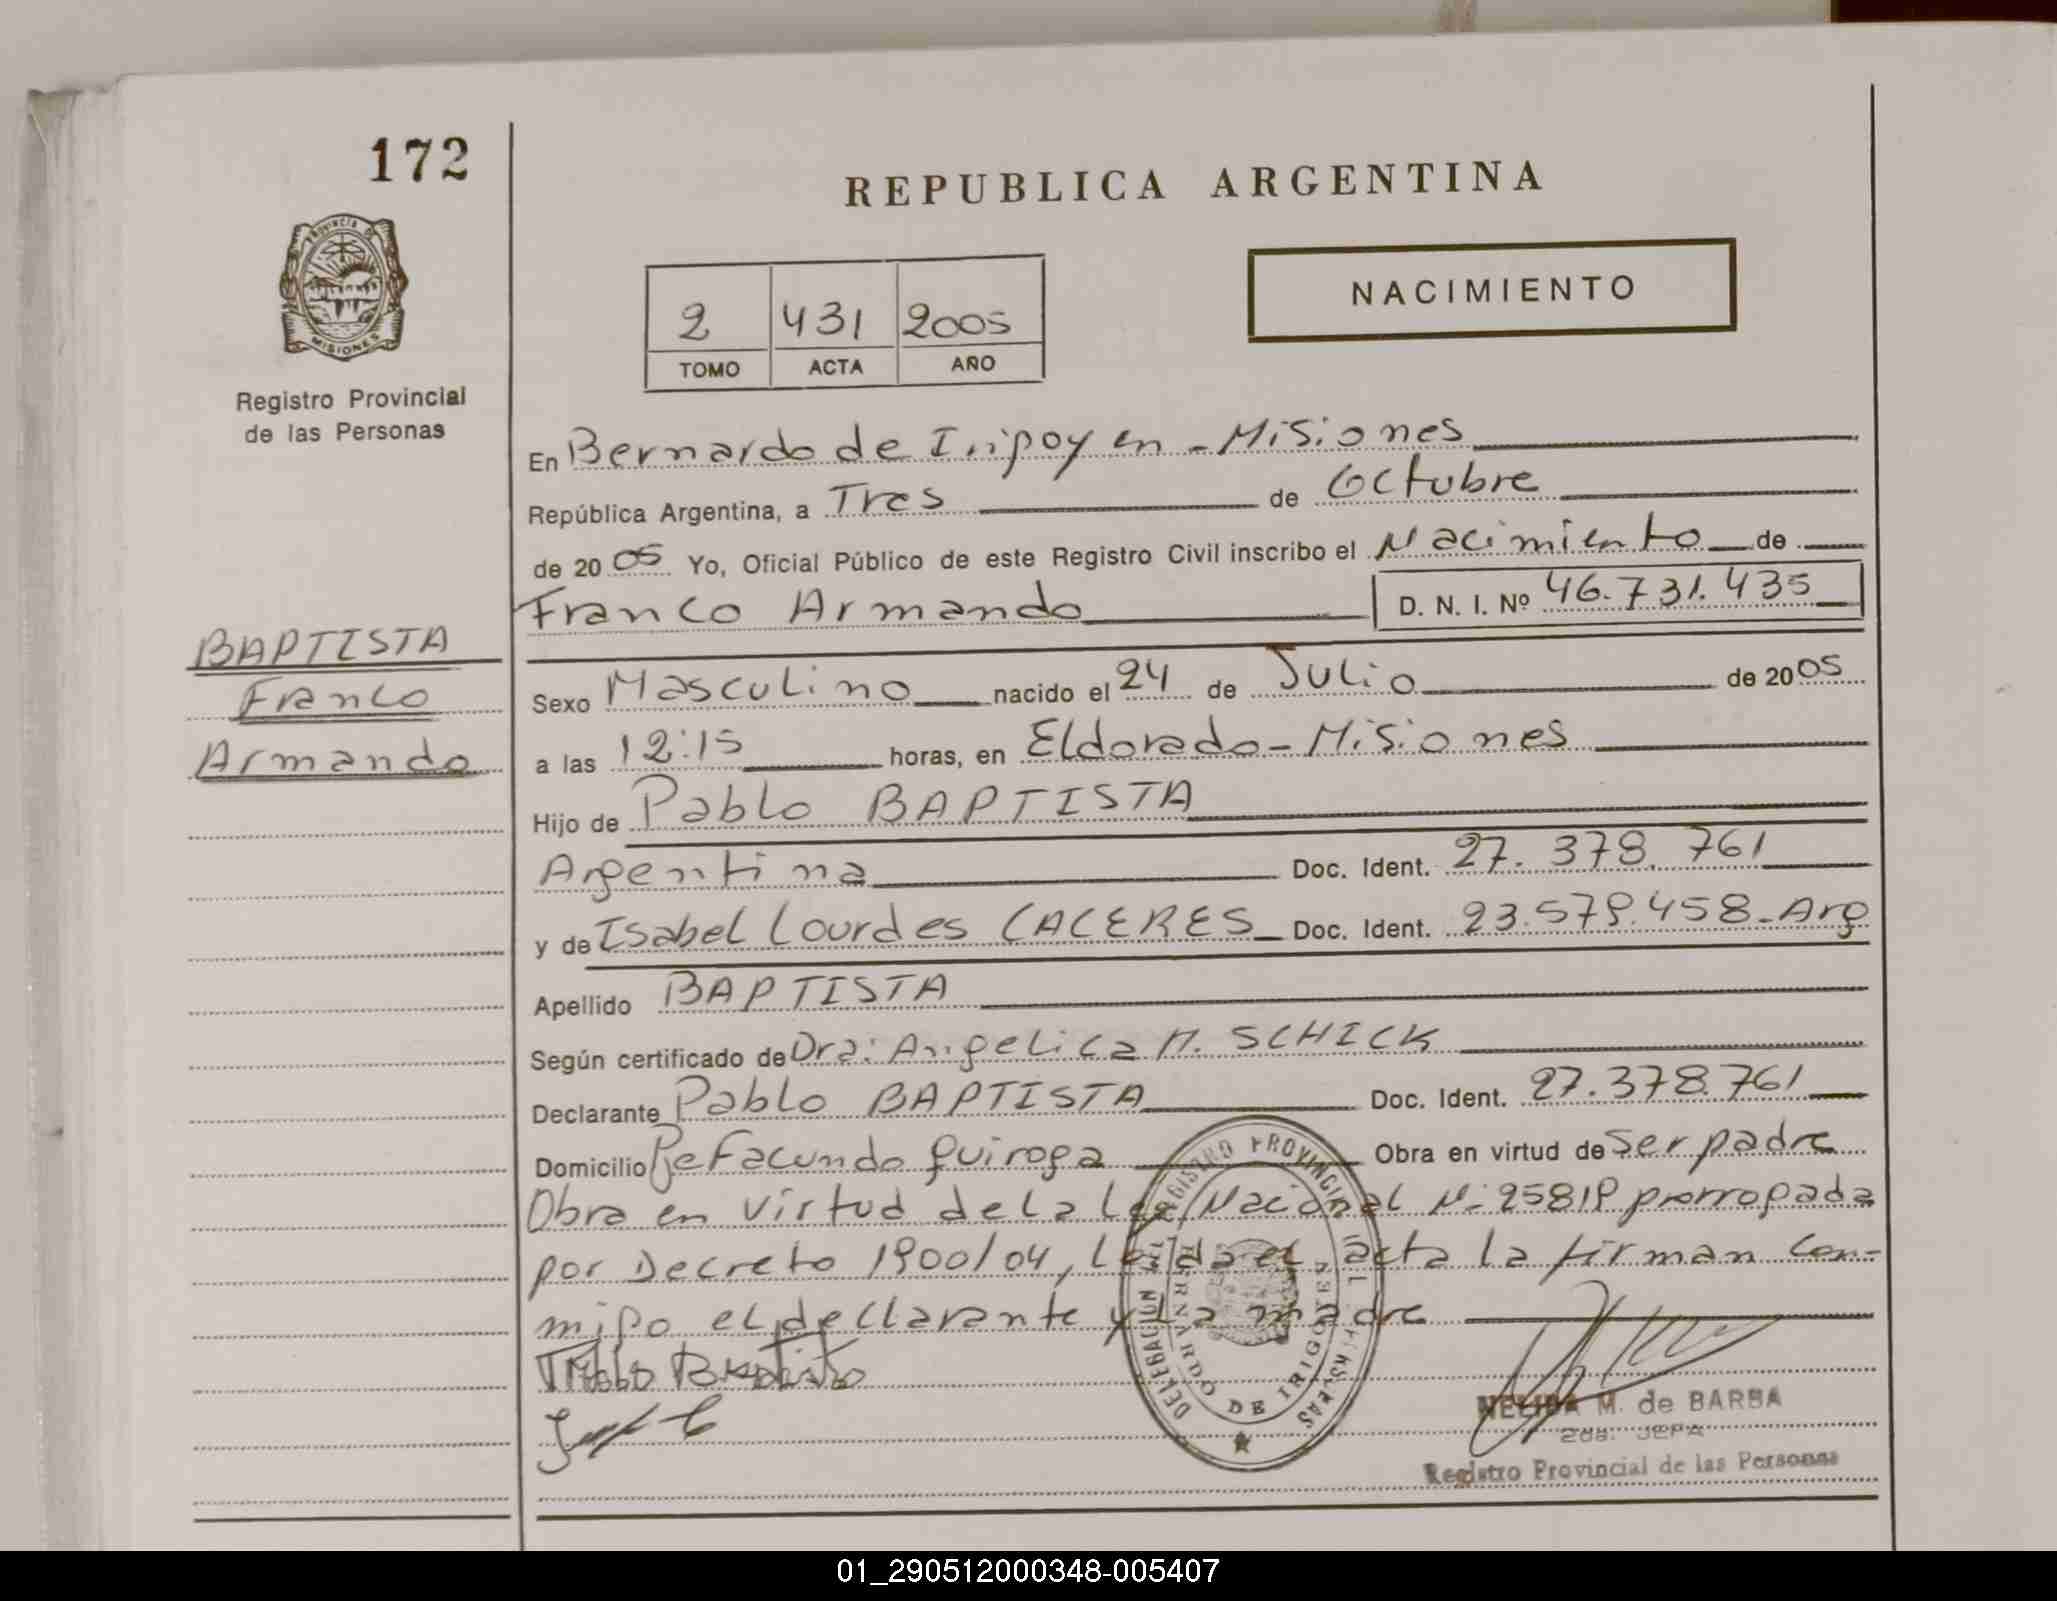 172
REPUBLICA ARGENTINA
PROVINCIA DE MISIONES
Registro Provincial
de las Personas
NACIMIENTO
2 431 2005
TOMO ACTA AÑO
En Bernardo de Irigoyen - Misiones
República Argentina, a Tres de Octubre
de 2005 Yo, Oficial Público de este Registro Civil inscribo el Nacimiento de
Franco Armando D. N. I. Nº 46.731.435
BAPTISTA
Franco
Armando
Sexo Masculino nacido el 24 de Julio de 2005
a las 12:15 horas, en Eldorado - Misiones
Hijo de Pablo BAPTISTA
Argentina Doc. Ident. 27.378.761
y de Isabel Lourdes CACERES Doc. Ident. 23.579.458 - Arg
Apellido BAPTISTA
Según certificado de Dra: Angelica M. SCHICK
Declarante Pablo BAPTISTA Doc. Ident. 27.378.761
Domicilio Pje Facundo Quiroga Obra en virtud de Ser padre
Obra en virtud de la Ley Nacional N: 25819 prorrogada
por Decreto 1900/04, Leida el acta la firman Con-
migo el declarante y La madre
Pablo Baptista
DELEGACION DEL REGISTRO PROVINCIAL DE LAS PERSONAS
BERNARDO DE IRIGOYEN
NELIDA M. de BARBA
2da. JEFA
Registro Provincial de las Personas
01_290512000348-005407